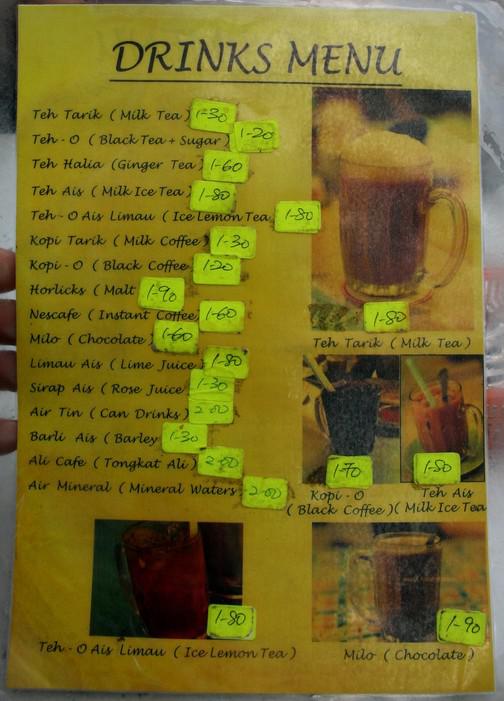 DRINKS MENU
Teh Tarik (Milk Tea) 1-30
Teh-O (Black Tea + Sugar) 1-20
Teh Halia (Ginger Tea) 1-60
Teh Ais (Milk Ice Tea) 1-80
Teh-O Ais Limau (Ice Lemon Tea 1-80
Kopi Tarik (Milk Coffee) 1-30
Kopi-O (Black Coffee 1-20
Horlicks (Malt 1-90
Nescafe (Instant Coffee) 1-60
Milo (Chocolate) 1-60
Limau Ais (Lime Juice) 1-80
Sirap Ais (Rose Juice 1-30
Air Tin (Can Drinks) 2-00
Barli Ais (Barley 1-30
Ali Cafe (Tongkat Ali) 2-00
Air Mineral (Mineral Waters 2-00
1-80
Teh Tarik (Milk Tea)
1-70
1-80
Kopi-O
(Black Coffee)
Teh Ais
(Milk Ice Tea
1-80
Teh-O Ais Limau (Ice Lemon Tea)
1-90
Milo (Chocolate)